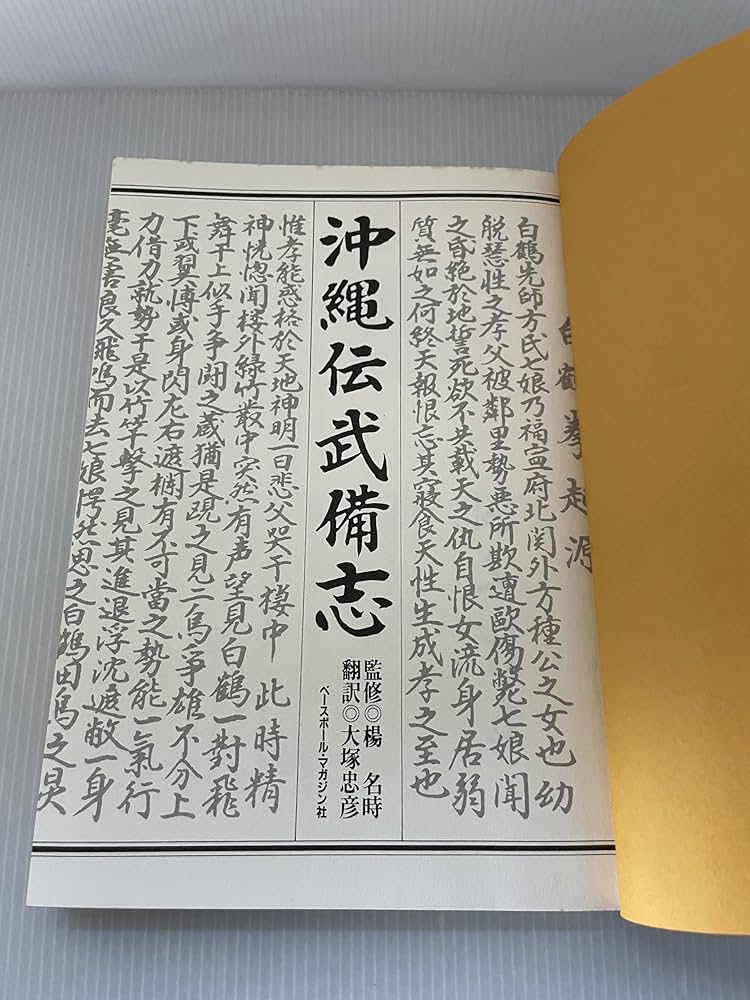 白鶴拳起源
白鶴先師方氏七娘乃福寍府北関外方種公之女也幼
脱慧性之孝父被鄰里勢悪所欺遭毆傷斃七娘聞
之昏絶於地誓死欲不共載天之仇自恨女流身居弱
質無如之何終天報恨忘其寝食天性生成孝之至也
沖縄伝武備志
監修◎楊 名時
翻訳◎大塚忠彦
ベースボール・マガジン社
惟孝能惑格於天地神明一日悲父哭于棲中 此時精
神恍惚聞楼外緑竹叢中突然有声望見白鶴一對飛
舞干上似手争闘之蔵猶是覗之見二鳥争雄不分上
下或翼博或身閃左右遮欄有不可當之勢能一氣行
力借力就勢于是以竹竿撃之見其進退浮沈遮敝一身
毫無善良久飛鳴而去七娘愕然思之白鶴田鳥之